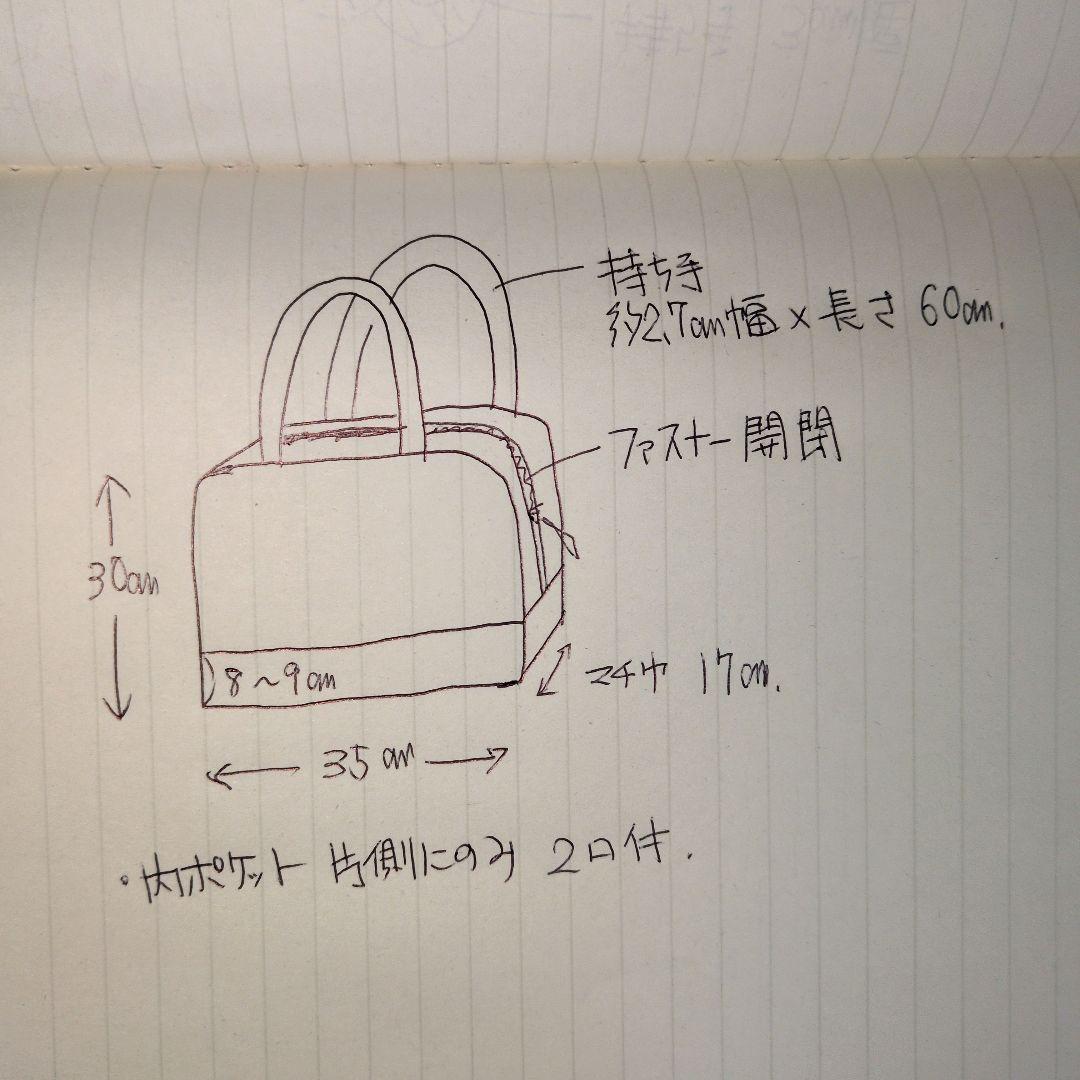 持ち手
約2.7cm幅×長さ 60cm.
ファスナー開閉
30cm
8〜9cm
マチ巾 17cm.
35cm
・内ポケット 片側にのみ 2口付.